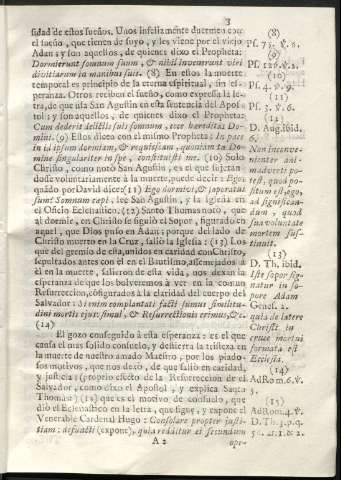 3
sidad de estos sueños. Unos infelizmente duermen con
el sueño, que tienen de suyo, y les viene por el viejo
Adan: y son aquellos, de quienes dixo el Propheta:
Dormierunt somnum suum, & nihil invenerunt viri
divitiarum in manibus suis. (8) En estos la muerte
temporal es principio de la eterna espiritual, sin es-
peranza. Otros reciben el sueño, como expressa la le-
tra, de que usa San Agustin en esta sentencia del Apos-
tol: y son aquellos, de quienes dixo el Propheta:
Cum dederit dilectis suis somnum, ecce hæreditas Do-
mini. (9) Estos dicen con el mismo Propheta: In pace
in id ipsum dormiam, & requiescam, quoniam tu Do-
mine singulariter in spe, constituisti me. (10) Solo
Christo, como notò San Agustin, es el que sujetan
dose voluntariamente à la muerte, puede decir: Ego:
quãdo por David dice: (11) Ego dormivi, & soporatus
sum: Somnum cepi, lee San Agustin, y la Iglesia en
el Oficio Eclesiastico. (12) Santo Thomas notò, que
al dormir, en Christo se siguiò el Sopor, figurado en
aquel, que Dios puso en Adan; porque del lado de
Christo muerto en la Cruz, saliò la Iglesia: (13) Los
que del gremio de esta, unidos en caridad con Christo,
sepultados antes con el en el Bautismo, assemejados à
èl en la muerte, salieron de esta vida, nos dexan la
esperanza de que los bolveremos à ver en la comun
Resurreccion, configurados à la claridad del cuerpo del
Salvador: Si enim complantati facti sumus similitu-
dini mortis ejus: simul, & Resurrectionis erimus, &c.
(14)
El gozo conseguido à esta esperanza: es el que
causa el mas solido consuelo, y destierra la tristeza en
la muerte de nuestro amado Maestro, por los piado-
sos motivos, que nos dexò, de que saliò en caridad,
y justicia: (proprio efecto de la Resurreccion de el
Salvador, como dixo el Apostol, y explica Santo
Thomàs) (15) que es el motivo de consuelo, que
diò el Eclesiastico en la letra, que sigue, y expone el
Venerable Cardenal Hugo: Consolare propter justi-
tiam: defuncti (expone), quia redditur ei secundùm
A 2 ope-
(8)
Ps. 75. ℣. 6.
(9)
Ps. 126. ℣. 2.
(10)
Ps. 4. ℣. 9.
(11)
Ps. 3. ℣. 6.
(12)
D. Aug. ibid.
Non inconve-
nienter ani-
madverti po-
test, quod po-
situm est, ego,
ad significan-
dum, quod
sua voluntate
mortem sus-
tinuit.
(13)
D. Th. ibid.
Iste sopor sig-
natur in so-
pore Adam
Genes. 2.
quia de latere
Christi in
cruce mortui
formata est
Ecclesia.
(14)
Ad Rom. 6. ℣.
5.
(15)
Ad Rom. 4. ℣.
D. Th. 3. p. q.
56. a. 1. & 2.